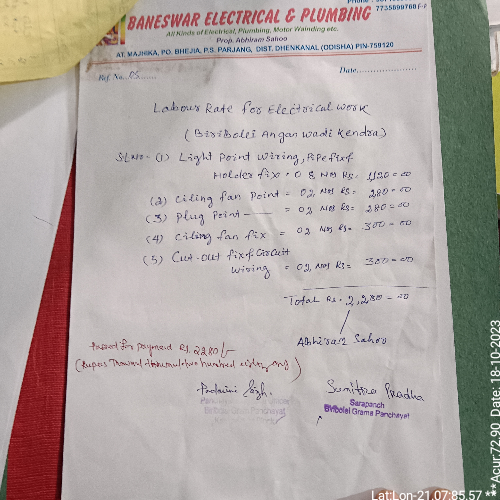 Phone :
7735899768
BANESWAR ELECTRICAL & PLUMBING
All Kinds of Electrical, Plumbing, Motor Wainding etc.
Prop. Abhiram Sahoo
AT. MAJHIKA, PO. BHEJIA, P.S. PARJANG, DIST. DHENKANAL (ODISHA) PIN-759120
Ref. No. 05
Date
Labour Rate for Electrical work
(Biribolei Anganwadi Kendra)
SL No- (1) Light Point wiring, Pipe fix &
Holder fix = 08 Nos Rs= 1120=00
(2) Ciling fan Point = 02 Nos Rs= 280=00
(3) Plug Point = 02 Nos Rs= 280=00
(4) Ciling fan fix = 02 Nos Rs= 300=00
(5) Cut-out fix & Circuit
wiring = 02 Nos Rs= 300=00
Total Rs. 2,280=00
Abhiram Sahoo
Passed for payment Rs. 2280/-
(Rupees Thousand two hundred eighty only)
Sumitra Pradha
Sarapanch
Biribolei Grama Panchayat
Biribolei Grama Panchayat
Lat:Lon-21.07:85.57
** Cour:72.90 Date: 18-10-2023